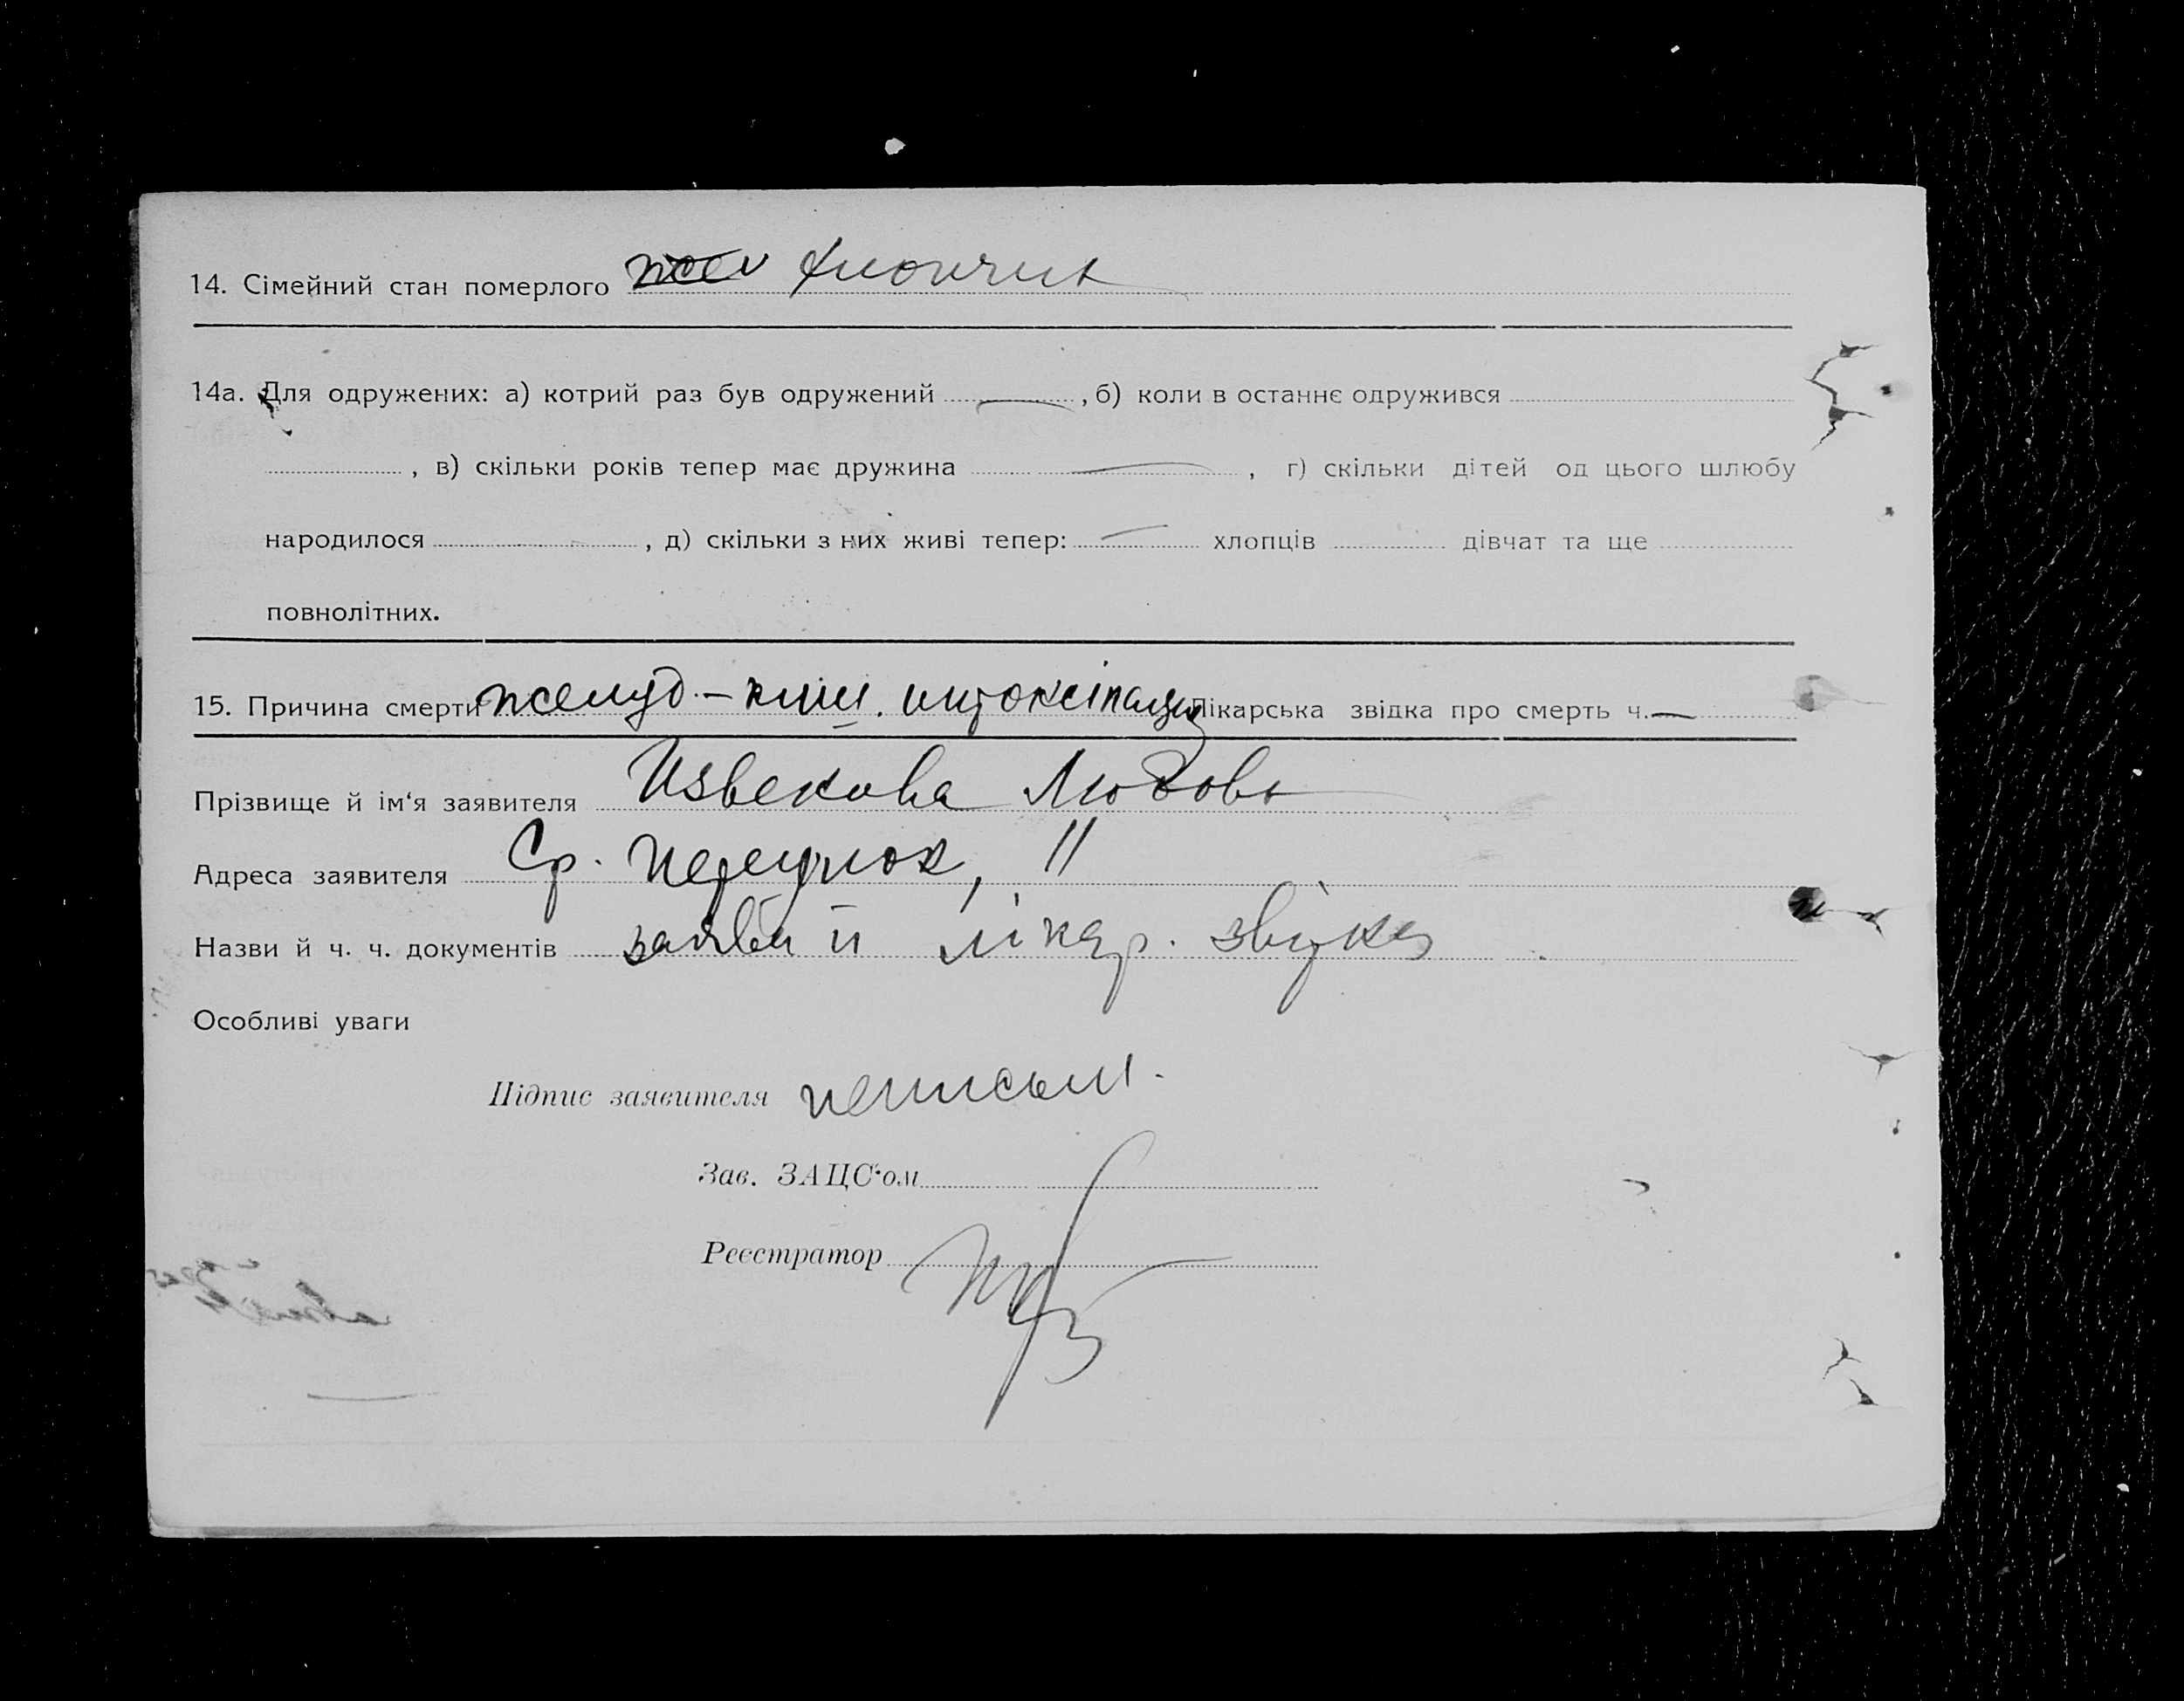 14. Сімейний стан померлого хлопчик
14а. Для одружених: а) котрий раз був одружений —, б) коли в останнє одружився
, в) скільки років тепер має дружина —, г) скільки дітей од цього шлюбу
народилося , д) скільки з них живі тепер: — хлопців дівчат та ще
повнолітних.
15. Причина смерти желуд.-киш. интоксікація Лікарська звідка про смерть ч. —
Прізвище й ім‘я заявителя Извекова Любовь
Адреса заявителя Ср. переулок, 11
Назви й ч. ч. документів заява й лікар. звідка
Особливі уваги
Підпис заявителя неписьм.
Зав. ЗАЦС‘ом
Реєстратор